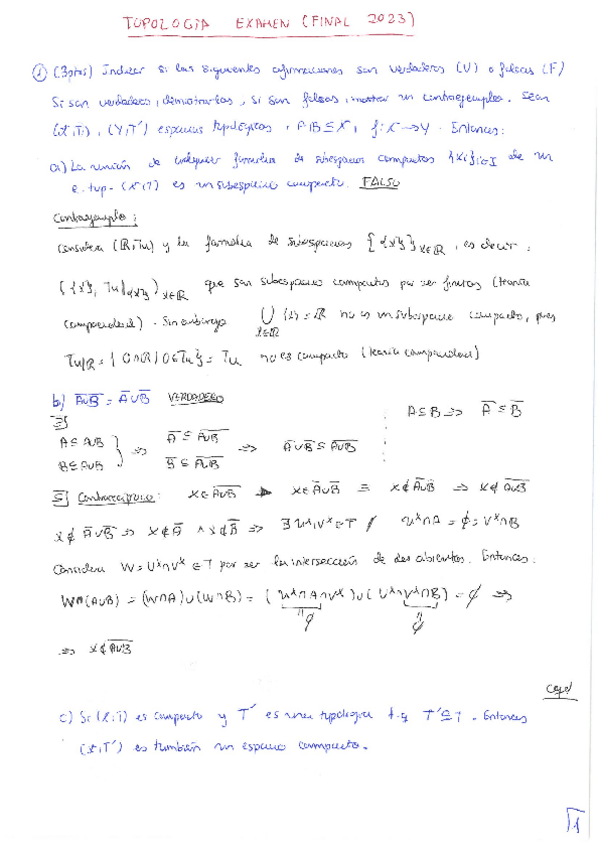 TOPOLOGÍA EXAMEN (FINAL 2023)
① (3ptos) Indicar si las siguientes afirmaciones son verdaderas (V) o falsas (F)
Si son verdaderas, demostrarlas, si son falsas, mostrar un contraejemplo. Sean
(X,T), (Y,T') espacios topológicos, A,B ⊆ X, f: X → Y. Entonces:
a) La unión de cualquier familia de subespacios compactos {Xi}i∈I de un
e. top. (X,T) es un subespacio compacto. FALSO
Contraejemplo:
Considera (ℝ,Tu) y la familia de subespacios { {x} }x∈ℝ, es decir:
({x}, Tu|{x})x∈ℝ que son subespacios compactos por ser finitos (teoría
compacidad). Sin embargo ⋃x∈ℝ {x} = ℝ no es un subespacio compacto, pues
Tu|ℝ = { O∩ℝ | O∈Tu } = Tu no es compacto (teoría compacidad)
b) A̅∪̅B̅ = A̅∪B̅ VERDADERO
A⊆B => A̅ ⊆ B̅
⊇]
A⊆A∪B } => A̅ ⊆ A̅∪̅B̅ => A̅∪B̅ ⊆ A̅∪̅B̅
B⊆A∪B } B̅ ⊆ A̅∪̅B̅
⊆] Contrarrecíproco: x∈A̅∪̅B̅ => x∈A̅∪B̅ ≡ x∉A̅∪B̅ => x∉A̅∪̅B̅
x∉A̅∪B̅ => x∉A̅ ∧ x∉B̅ => ∃ Uˣ,Vˣ∈T / Uˣ∩A = ∅ = Vˣ∩B
Considera W = Uˣ∩Vˣ ∈ T por ser la intersección de dos abiertos. Entonces:
W∩(A∪B) = (W∩A)∪(W∩B) = (Uˣ∩A∩Vˣ)∪(Uˣ∩Vˣ∩B) = ∅ =>
= ∅ = ∅
=> x∉A̅∪̅B̅
c) Si (X,T) es compacto y T' es una topología t.q T'⊆T. Entonces
(X,T') es también un espacio compacto.
1